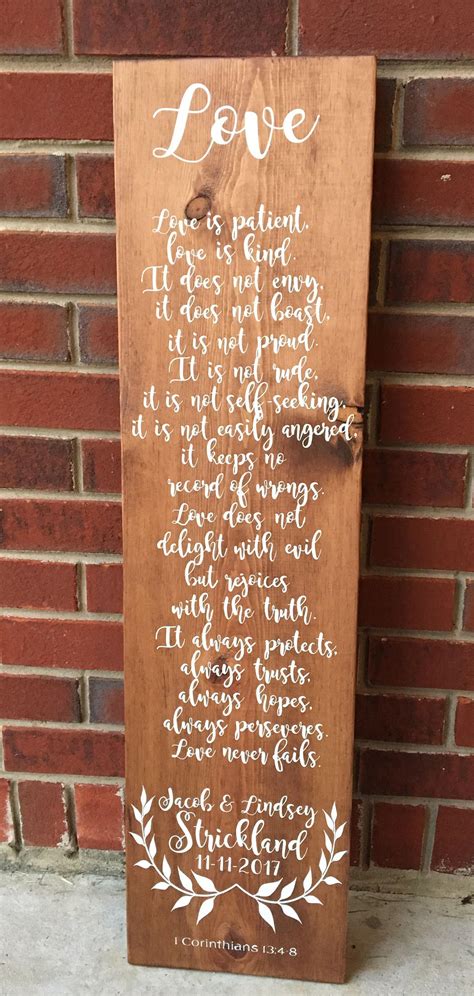 Love
Love is patient,
love is kind.
It does not envy,
it does not boast,
it is not proud.
It is not rude,
it is not self-seeking,
it is not easily angered,
it keeps no
record of wrongs.
Love does not
delight with evil
but rejoices
with the truth.
It always protects,
always trusts,
always hopes,
always perseveres.
Love never fails.
Jacob & Lindsey
Strickland
11-11-2017
1 Corinthians 13:4-8